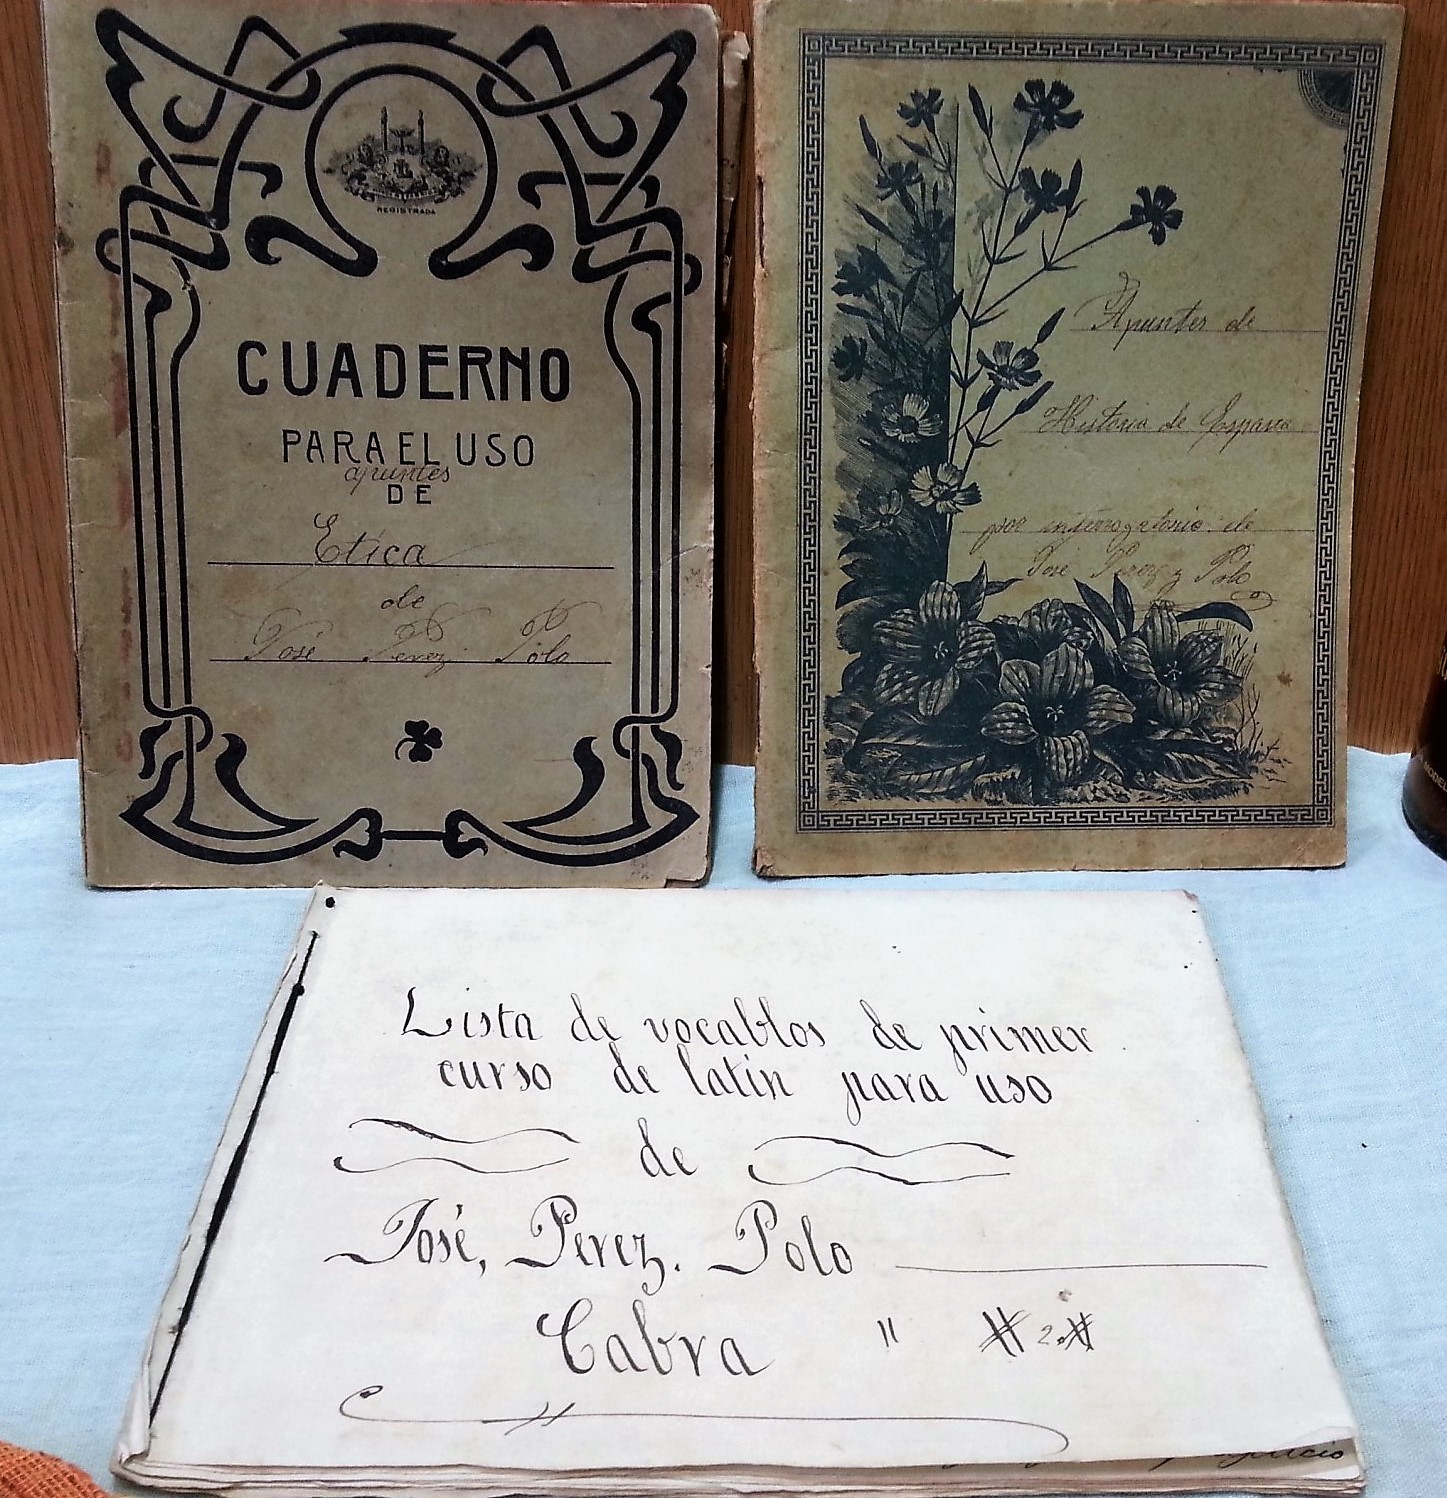 REGISTRADA
CUADERNO
PARA EL USO
apuntes
DE
Etica
de
José Perez Polo
Apuntes de
Historia de España
por interrogatorio de
José Perez y Polo
Lista de vocablos de primer
curso de latin para uso
de
José, Perez. Polo
Cabra "